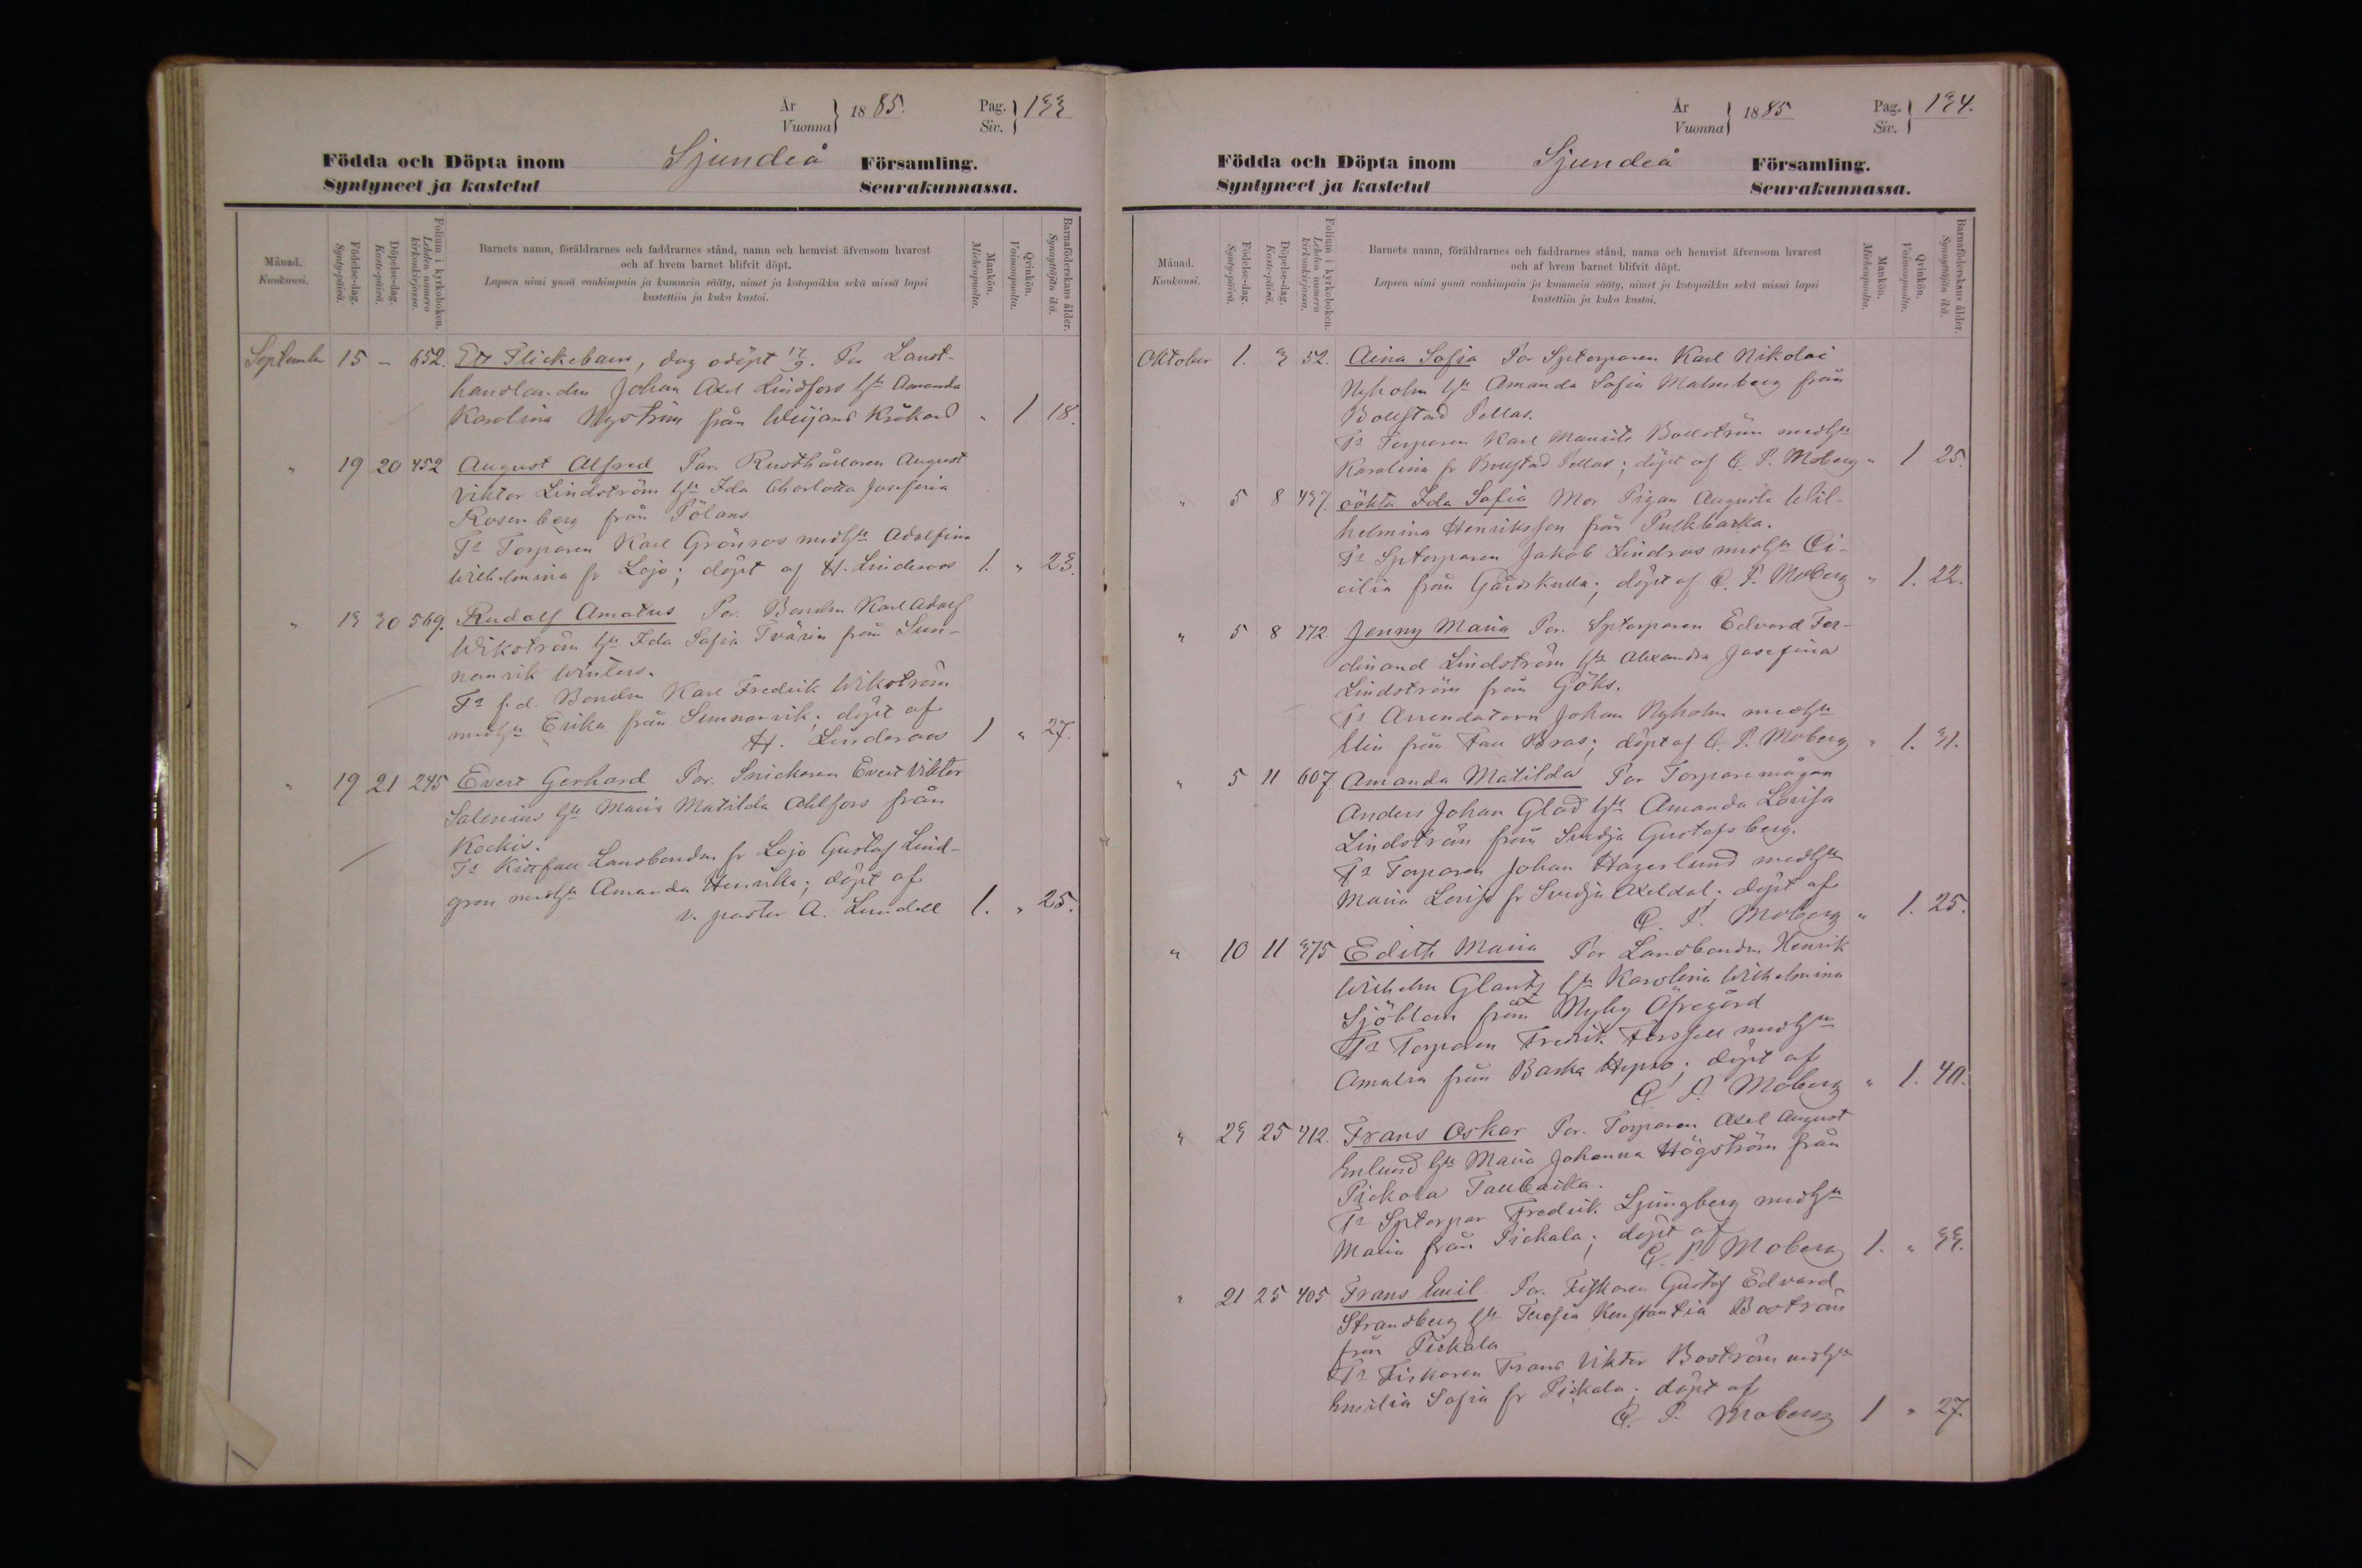 År
Vuonna } 1885.
Pag.
Siv. } 133
Födda och Döpta inom Sjundeå Församling.
Syntyneet ja kastetut Seurakunnassa.
Månad.
Kuukausi.
Födelse-dag.
Synty-päivä.
Döpelse-dag.
Kaste-päivä.
Folium i kyrkoboken.
Lehden numero kirkonkirjassa.
Barnets namn, föräldrarnes och faddrarnes stånd, namn och hemvist äfvensom hvarest
och af hvem barnet blifvit döpt.
Lapsen nimi ynnä vanhimpain ja kummein sääty, nimet ja kotopaikka sekä missä lapsi
kastettiin ja kuka kastoi.
Mankön.
Miehenpuolta.
Qvinkön.
Vaimonpuolta.
Barnaföderskans ålder.
Synnyttäjän ikä.
September 15 – 652. Ett Flickebarn, dog odöpt 17/9. Par Lant-
handlanden Johan Axel Lindfors hu Amanda
Karolina Nyström från Weijans Krökars " 1 18.
" 19 20 452 August Alfred Par. Rusthållaren August
Viktor Lindström hu Ida Charlotta Josefina
Rosenberg från Pölans
Ts Torparen Karl Grönroos med hu Adolfina
Wilhelmina fr Lojo; döpt af H. Linderoos 1. " 23.
" 13 30 569. Rudolf Amatus Par. Bonden Karl Adolf
Wikström hu Ida Sofia Tvärin från Sun-
nanvik Winters.
Ts f.d. Bonden Karl Fredrik Wikström
med hu Erika från Sunnanvik; döpt af
H. Linderoos 1 " 27.
" 19 21 245 Evert Gerhard Par. Snickaren Evert Viktor
Salenius hu Maria Matilda Ahlfors från
Kockis.
Ts Landbonden fr Lojo Gustaf Lind-
gren med hu Amanda Henrika; döpt af
v. pastor A. Lundell 1. " 25.
År
Vuonna } 1885
Pag.
Siv. } 134.
Födda och Döpta inom Sjundeå Församling.
Syntyneet ja kastetut Seurakunnassa.
Månad.
Kuukausi.
Födelse-dag.
Synty-päivä.
Döpelse-dag.
Kaste-päivä.
Folium i kyrkoboken.
Lehden numero kirkonkirjassa.
Barnets namn, föräldrarnes och faddrarnes stånd, namn och hemvist äfvensom hvarest
och af hvem barnet blifvit döpt.
Lapsen nimi ynnä vanhimpain ja kummein sääty, nimet ja kotopaikka sekä missä lapsi
kastettiin ja kuka kastoi.
Mankön.
Miehenpuolta.
Qvinkön.
Vaimonpuolta.
Barnaföderskans ålder.
Synnyttäjän ikä.
Oktober 1. 3 52. Aina Sofia Par Sptorparen Karl Nikolai
Nyholm hu Amanda Sofia Malmberg från
Bollstad Pellas.
Ts Torparen Karl Maurits Bollström med hu
Karolina fr Bollstad Pellas; döpt af C. P. Moberg " 1 25.
" 5 8 437. oökta Ida Sofia Mor Pigan Augusta Wil-
helmina Henriksson från Purkbacka.
Ts Sptorparen Jakob Lindroos med hu Ce-
cilia från Gårdskulla; döpt af C. P. Moberg " 1. 22.
" 5 8 172. Jenny Maria Par. Sptorparen Edvard Fer-
dinand Lindström hu Alexandra Josefina
Lindström från Göks.
Ts Arrendatorn Johan Nyholm med hu
Elin från Fall Bras; döpt af C. P. Moberg " 1. 31.
" 5 11 607 Amanda Matilda Par Torparemågen
Anders Johan Glad hu Amanda Lovisa
Lindström från Svidja Gustafsberg.
Ts Torparen Johan Hagerlund med hu
Maria Lovisa fr Svidja Axeldal; döpt af
C. P. Moberg " 1. 25.
" 10 11 375 Edith Maria Par Landbonden Henrik
Wilhelm Glantz hu Karolina Wilhelmina
Sjöblom från Nyby Öfregård
Ts Torparen Fredrik Forssell med hu
Amalia från Backa; döpt af
C. P. Moberg " 1. 40.
" 23 25 412. Frans Oskar Par. Torparen Axel August
Enlund hu Maria Johanna Högström från
Pickala Tallbacka.
Ts Sptorpar Fredrik Ljungberg med hu
Maria från Pickala; döpt af
C. P. Moberg 1. " 33.
" 21 25 405 Frans Emil Par. Fiskaren Gustaf Edvard
Strandberg hu Konstantia Boström
från Pickala
Ts Fiskaren Frans Viktor Boström med hu
Emilia Sofia fr Pickala; döpt af
C. P. Moberg 1 " 27.